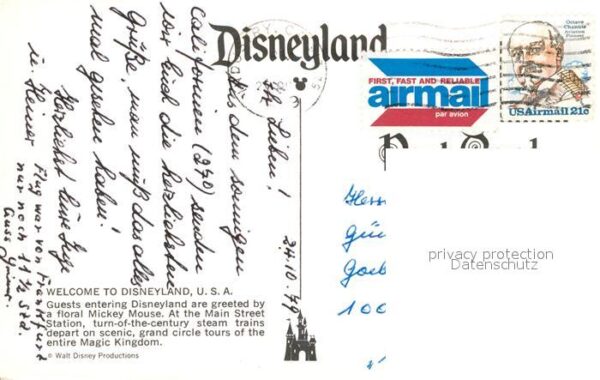 Disneyland
FIRST, FAST AND RELIABLE
airmail
par avion
Octave
Chanute
Aviation
Pioneer
USAirmail 21c
24.10.79
Ihr Lieben!
Aus dem sonnigen
Californien (240) senden
wir Euch die herzlichsten
Grüße, man muß das alles
mal gesehen haben!
Herzlichst Eure Inge
u. Heiner
Flug war von Frankfurt
nur noch 11 1/2 Std.
Gruss
Post Card
Herr
Gün
Goeb
100
privacy protection
Datenschutz
WELCOME TO DISNEYLAND, U. S. A.
Guests entering Disneyland are greeted by
a floral Mickey Mouse. At the Main Street
Station, turn-of-the-century steam trains
depart on scenic, grand circle tours of the
entire Magic Kingdom.
© Walt Disney Productions